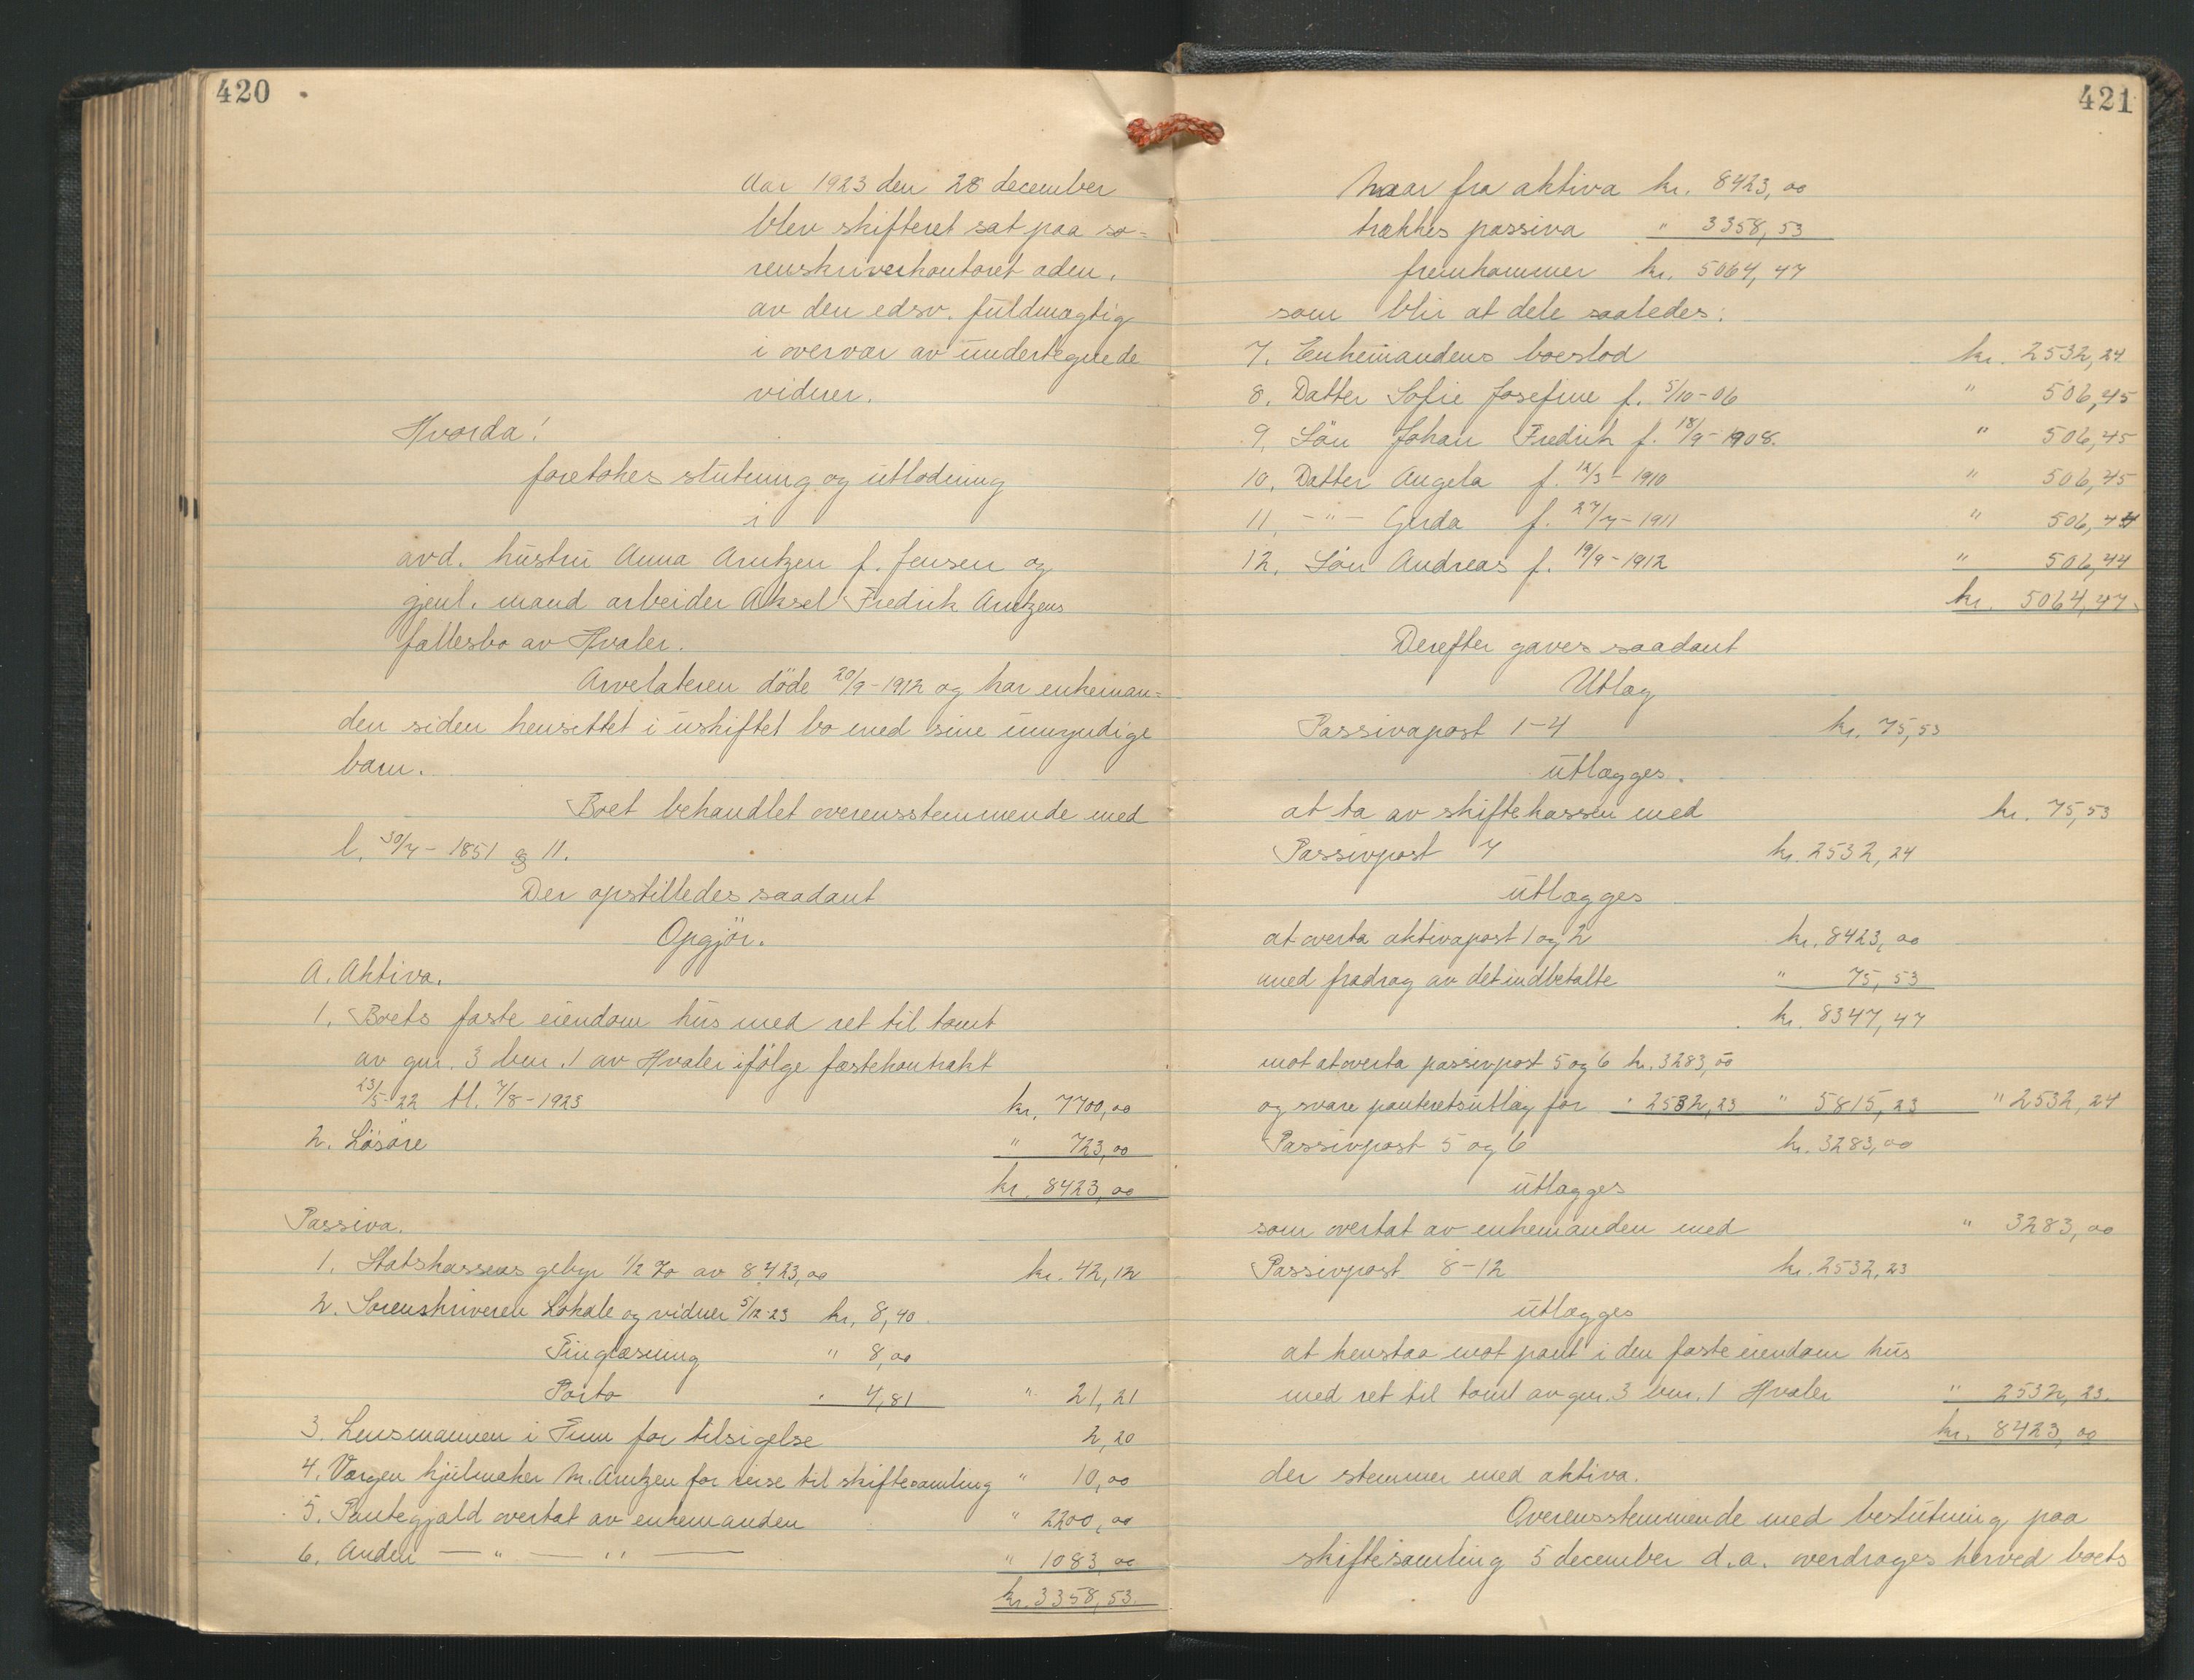 420
Aar 1923 den 28 december
blev skifteret sat paa so=
renskriverkontoret aden.
av den edsv. fuldmægtig
i overvær av undertegnede
vidner.
Hvorda!
foretokes slutning og utlodning
i
avd. hustru Anna Arntzen f. Jensen og
gjenl. mand arbeider Aksel Fredrik Arntzens
fællesbo av Hvaler.
Arvelateren döde 20/9-1912 og har enkeman=
den siden hensittet i uskiftet bo med sine umyndige
barn.
Boet behandlet overensstemmende med
l. 30/7-1851 § 11.
Der opstilledes saadant
Opgjör.
A. Aktiva.
1. Boets faste eiendom hus med ret til tomt
av gnr. 3 bnr. 1 av Hvaler ifölge fæstekontrakt
23/5-22 tl. 7/8-1923 kr. 7700,00
2. Lösöre " 723,00
kr. 8423,00
Passiva.
1. Statskassens gebyr 1/2 % av 8423,00 kr. 42,12
2. Sorenskriveren Lokale og vidner 5/12-23 kr. 8,40
Tinglæsning " 8,00
Porto " 4,81 " 21,21
3. Lensmannen i Tune for tilsigelse 2,20
4. Værgen hjulmaker M. Arntzen for reise til skiftesamling " 10,00
5. Pantegjæld overtat av enkemanden " 2200,00
6. Anden — " — " — " 1083,00
kr. 3358,53
421
Naar fra aktiva kr. 8423,00
trækkes passiva " 3358,53
fremkommer kr. 5064,47
som blir at dele saaledes:
7. Enkemandens boeslod kr. 2532,24
8. Datter Sofie Josefine f. 5/10-06 " 506,45
9. Sön Johan Fredrik f. 18/9-1908. " 506,45
10. Datter Angela f. 12/3-1910 " 506,45
11. -"- Gerda f. 27/7-1911 " 506,44
12. Sön Andreas f. 19/9-1912 " 506,44
kr. 5064,47
Derefter gaves saadant
Utlæg
Passivapost 1-4 kr. 75,53
utlægges.
at ta av skiftekassen med kr. 75,53
Passivpost 7 kr. 2532,24
utlægges
at overta aktivapost 1 og 2 kr. 8423,00
med fradrag av det indbetalte " 75,53
kr. 8347,47
mot at overta passivpost 5 og 6 kr. 3283,00
og svare panteretsutlæg for " 2532,23 " 5815,23 " 2532,24
Passivpost 5 og 6 kr. 3283,00
utlægges
som overtat av enkemanden med " 3283,00
Passivpost 8-12 kr. 2532,23
utlægges
at henstaa mot pant i den faste eiendom hus
med ret til tomt av gnr. 3 bnr. 1 Hvaler " 2532,23.
kr. 8423,00
der stemmer med aktiva.
Overensstemmende med beslutning paa
skiftesamling 5 december d.a. overdrages herved boets